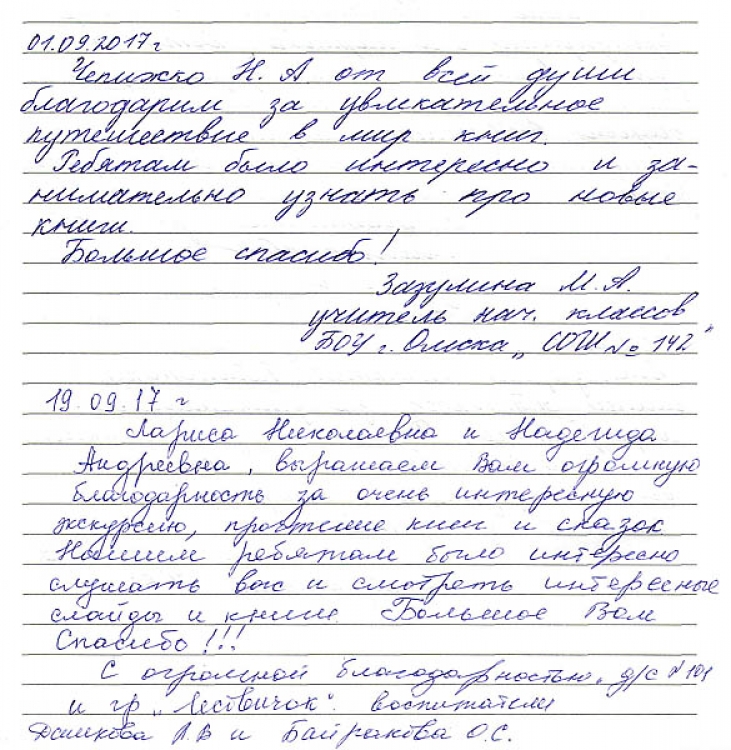 01.09.2017 г
Чепижко Н. А от всей души
благодарим за увлекательное
путешествие в мир книг.
Ребятам было интересно и за-
нимательно узнать про новые
книги.
Большое спасибо!
Зазулина М. А.
учитель нач. классов
БОУ г. Омска „СОШ № 142"
19.09.17 г
Лариса Николаевна и Надежда
Андреевна, выражаем Вам огромную
благодарность за очень интересную
экскурсию, прочтение книг и сказок
Нашим ребятам было интересно
слушать вас и смотреть интересные
слайды и книги Большое Вам
Спасибо!!!
С огромной благодарностью, д/с № 101
и гр „ " воспитатели
В и Байракова О.С.